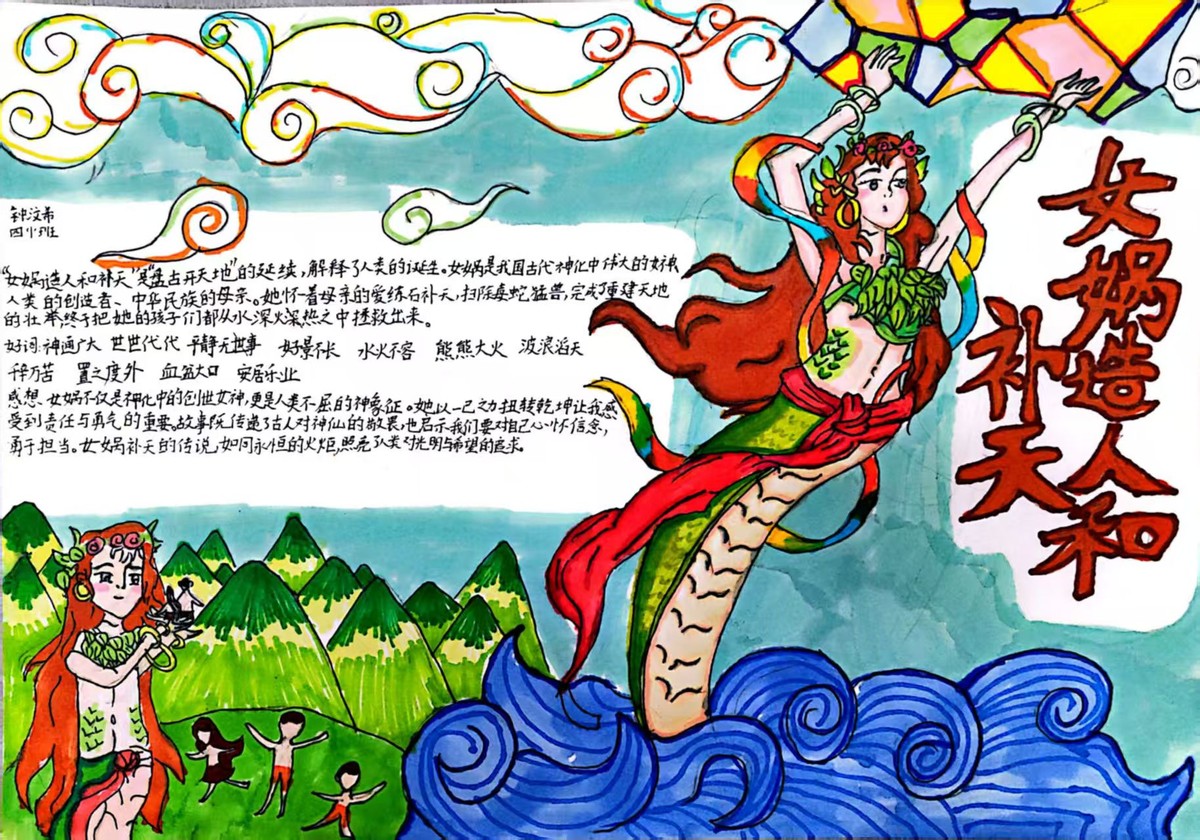 女娲造人和
补天
钟汶希
四(1)班
“女娲造人和补天”是“盘古开天地”的延续,解释了人类的诞生。女娲是我国古代神化中伟大的女神,
人类的创造者、中华民族的母亲。她怀着母亲的爱练石补天,扫除毒蛇猛兽,完成了重建天地
的壮举,终于把她的孩子们都从水深火热之中拯救出来。
好词:神通广大 世世代代 平静无事 好景不长 水火不容 熊熊大火 波浪滔天
千辛万苦 置之度外 血盆大口 安居乐业
感想:女娲不仅是神化中的创世女神,更是人类不屈的神象征。她以一己之力扭转乾坤,让我感
受到责任与勇气的重要。故事既传递了古人对神仙的敬畏,也启示我们要对自己心怀信念,
勇于担当。女娲补天的传说,如同永恒的火炬,照亮了人类对光明与希望的追求。